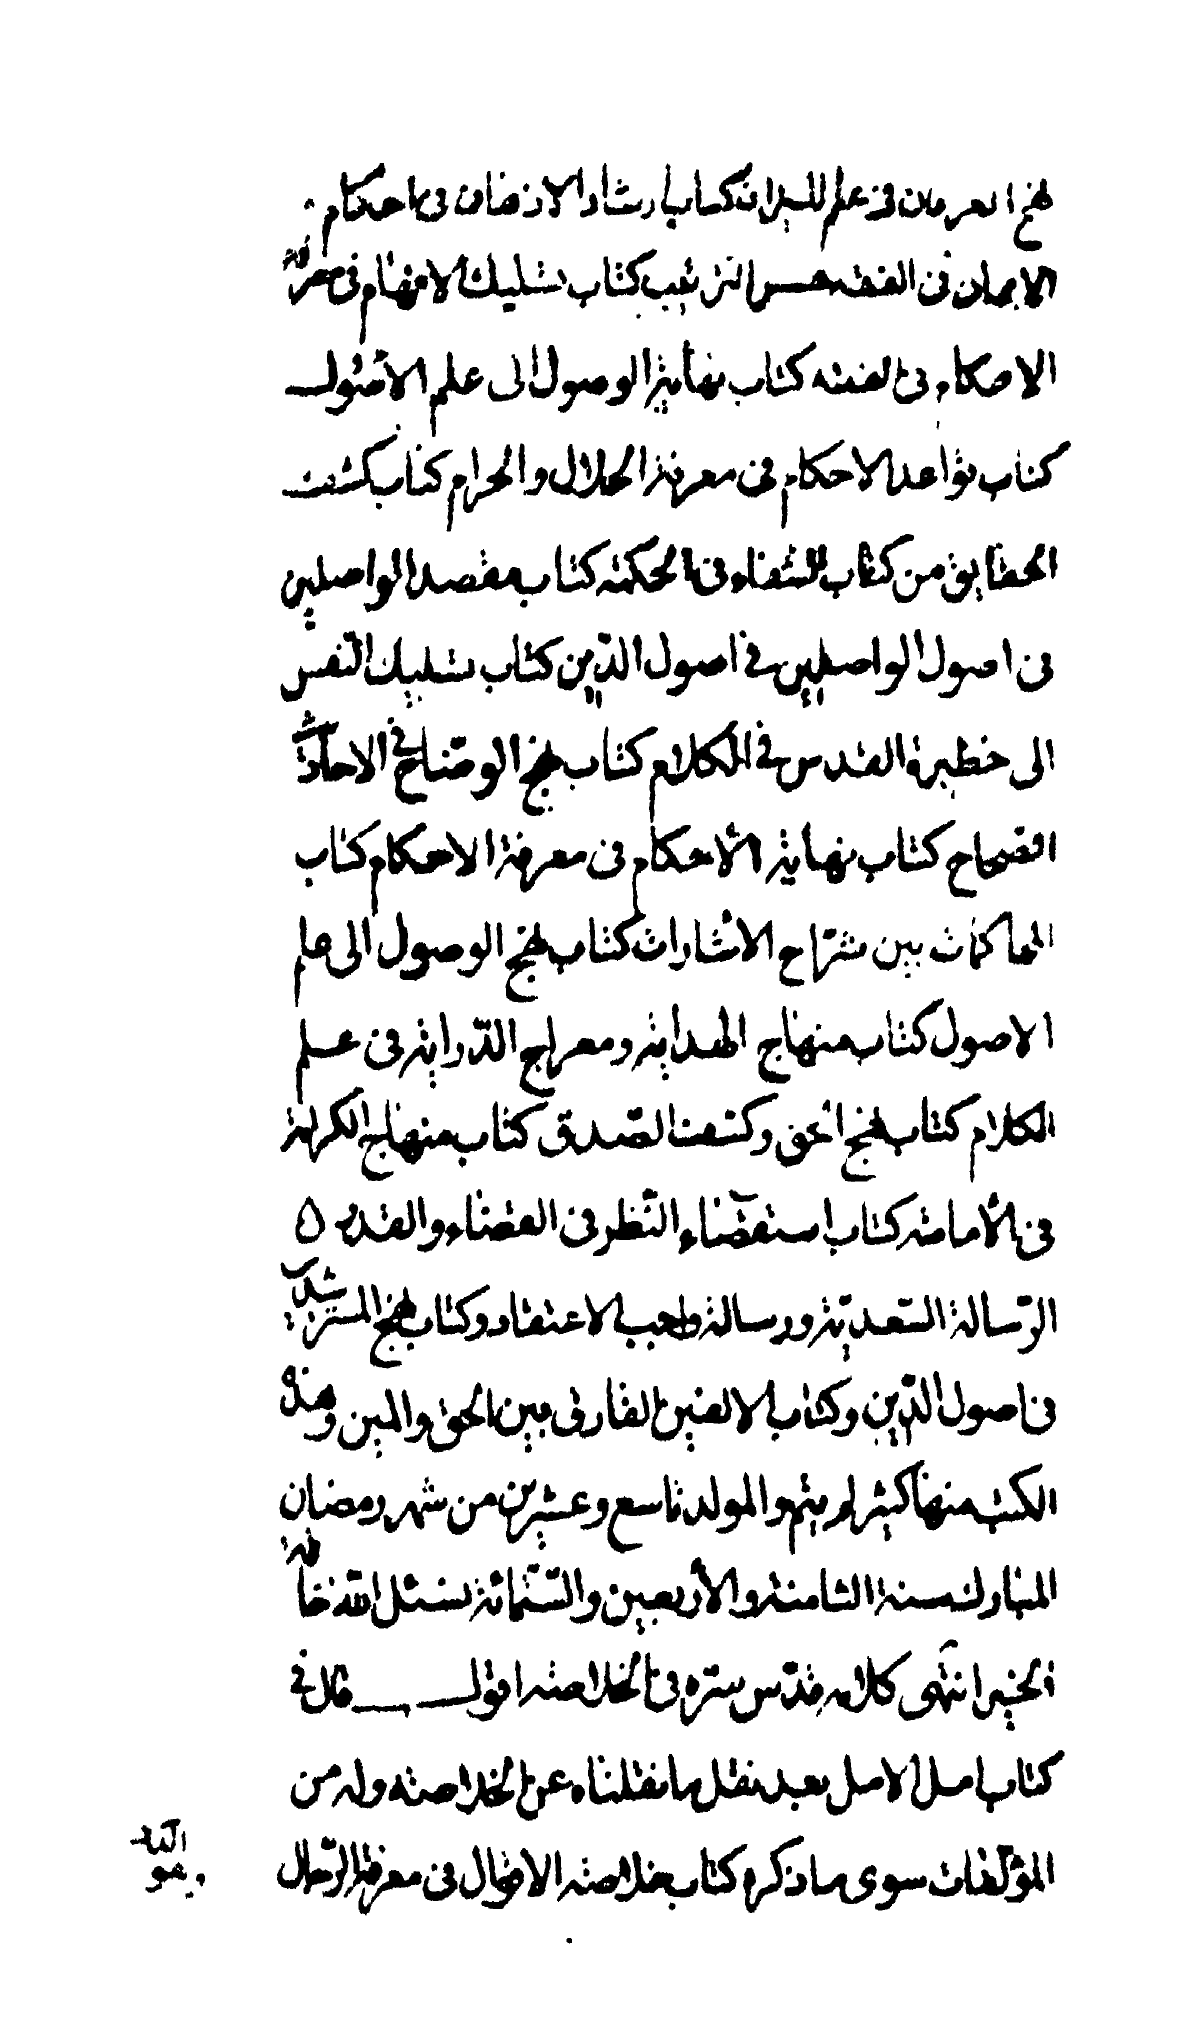 نهج العرفان في علم الميزان كتاب ارشاد الاذهان في احكام
الايمان في الفقه حسن الترتيب كتاب تسليك الافهام في معرفة
الاحكام في الفقه كتاب نهاية الوصول الى علم الاصول
كتاب قواعد الاحكام في معرفة الحلال والحرام كتاب كشف
الحقايق من كتاب الشفاء في الحكمة كتاب مقصد الواصلين
في اصول الواصلين في اصول الدّين كتاب تسليك النّفس
الى حظيرة القدس في الكلام كتاب نهج الوضّاح في الاحاديث
الصّحاح كتاب نهاية الأحكام في معرفة الاحكام كتاب
المحاكمات بين شرّاح الاشارات كتاب نهج الوصول الى علم
الاصول كتاب منهاج الهداية ومعراج الدّراية في علم
الكلام كتاب نهج الحق وكشف الصّدق كتاب منهاج الكرامة
في الأمامة كتاب استقصاء النّظر في القضاء والقدر
الرّسالة السّعديّة ورسالة واجب الاعتقاد وكتاب نهج المسترشدين
في اصول الدّين وكتاب الالفين الفارق بين الحق والمين وهذه
الكتب منها كثير لم يتم والمولد تاسع وعشرين من شهر رمضان
المبارك سنة الثامنة والأربعين والسّتمائة نسئل الله خاتمة
الخير انتهى كلامه قدّس سرّه في الخلاصة اقول قال في
كتاب امل الامل بعد نقل ما نقلناه عن الخلاصة وله من
المؤلّفات سوى ما ذكره كتاب خلاصة الاقوال في معرفة الرّجال